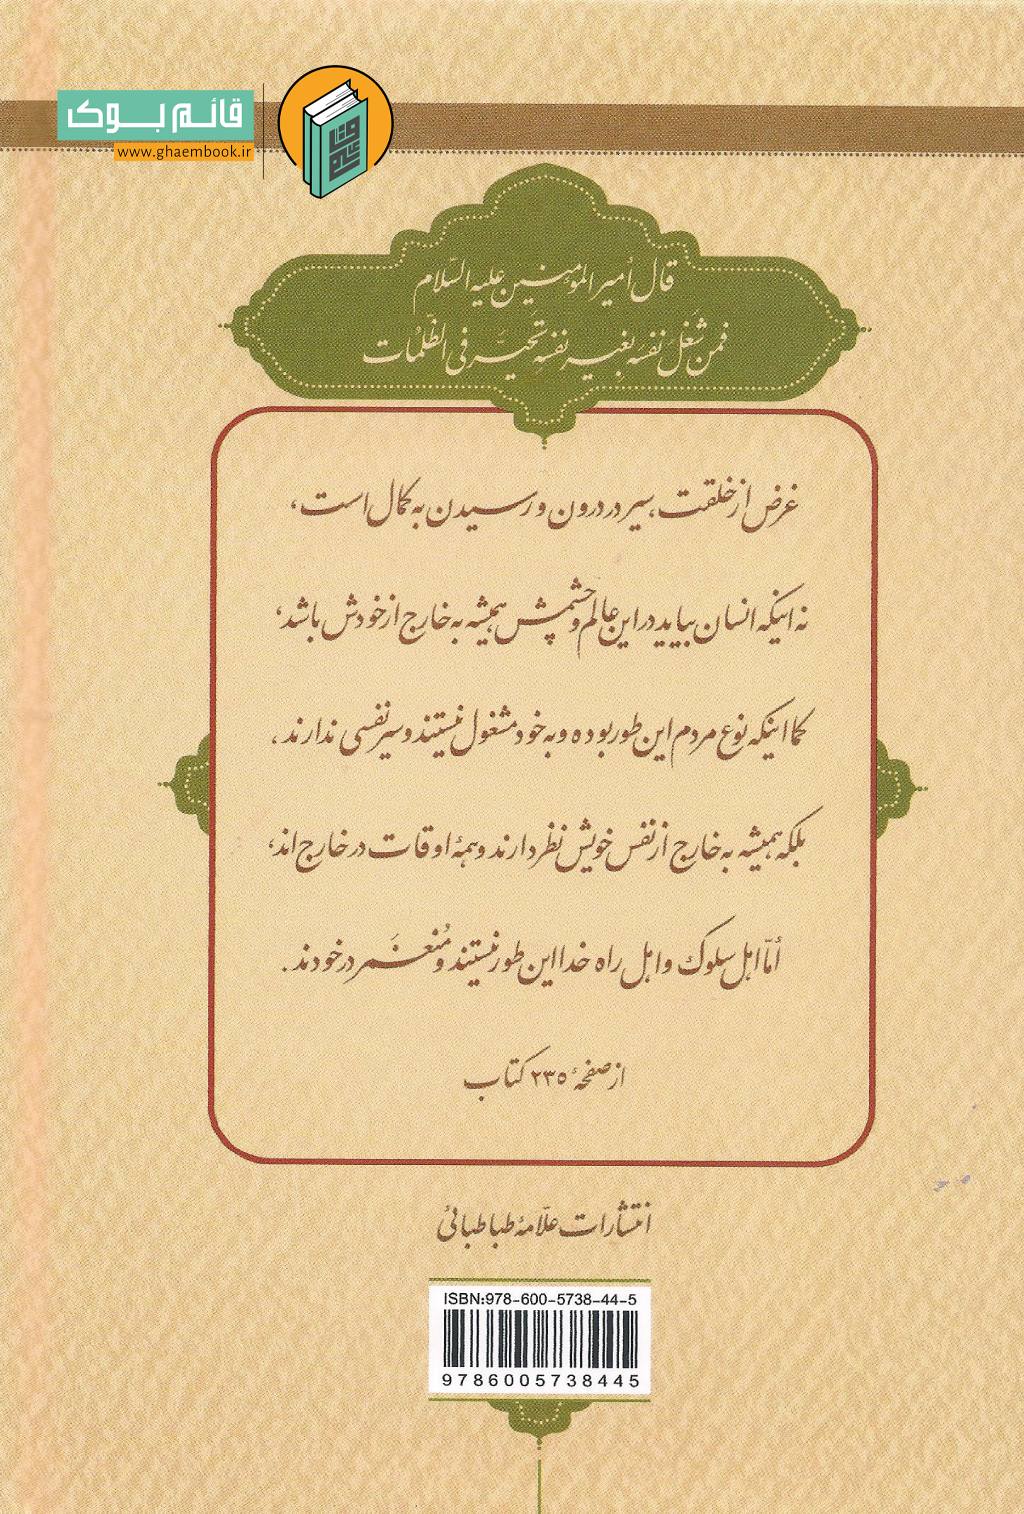 قائم بوک
www.ghaembook.ir
قال أمیر المؤمنین علیه السّلام
فمن شَغَلَ نفسَه بغیر نفسِه تحیَّر فی الظّلُمات
غرض از خلقت، سیر در درون و رسیدن به کمال است،
نه اینکه انسان بیاید در این عالم و چشمش همیشه به خارج از خودش باشد،
کما اینکه نوع مردم این طور بوده و به خود مشغول نیستند و سیر نفسی ندارند.
بلکه همیشه به خارج از نفس خویش نظر دارند و همۀ اوقات در خارج اند،
أمّا اهل سلوک و اهل راه خدا این طور نیستند و مُنغَمِر در خودند.
از صفحۀ ۲۳۵ کتاب
انتشارات علّامۀ طباطبائی
ISBN:978-600-5738-44-5
9786005738445